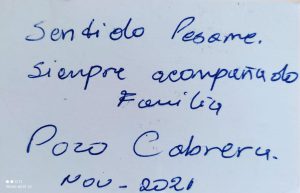 Sentido Pesame.
Siempre acompañado
Familia
Pozo Cabrera.
Nov - 2021